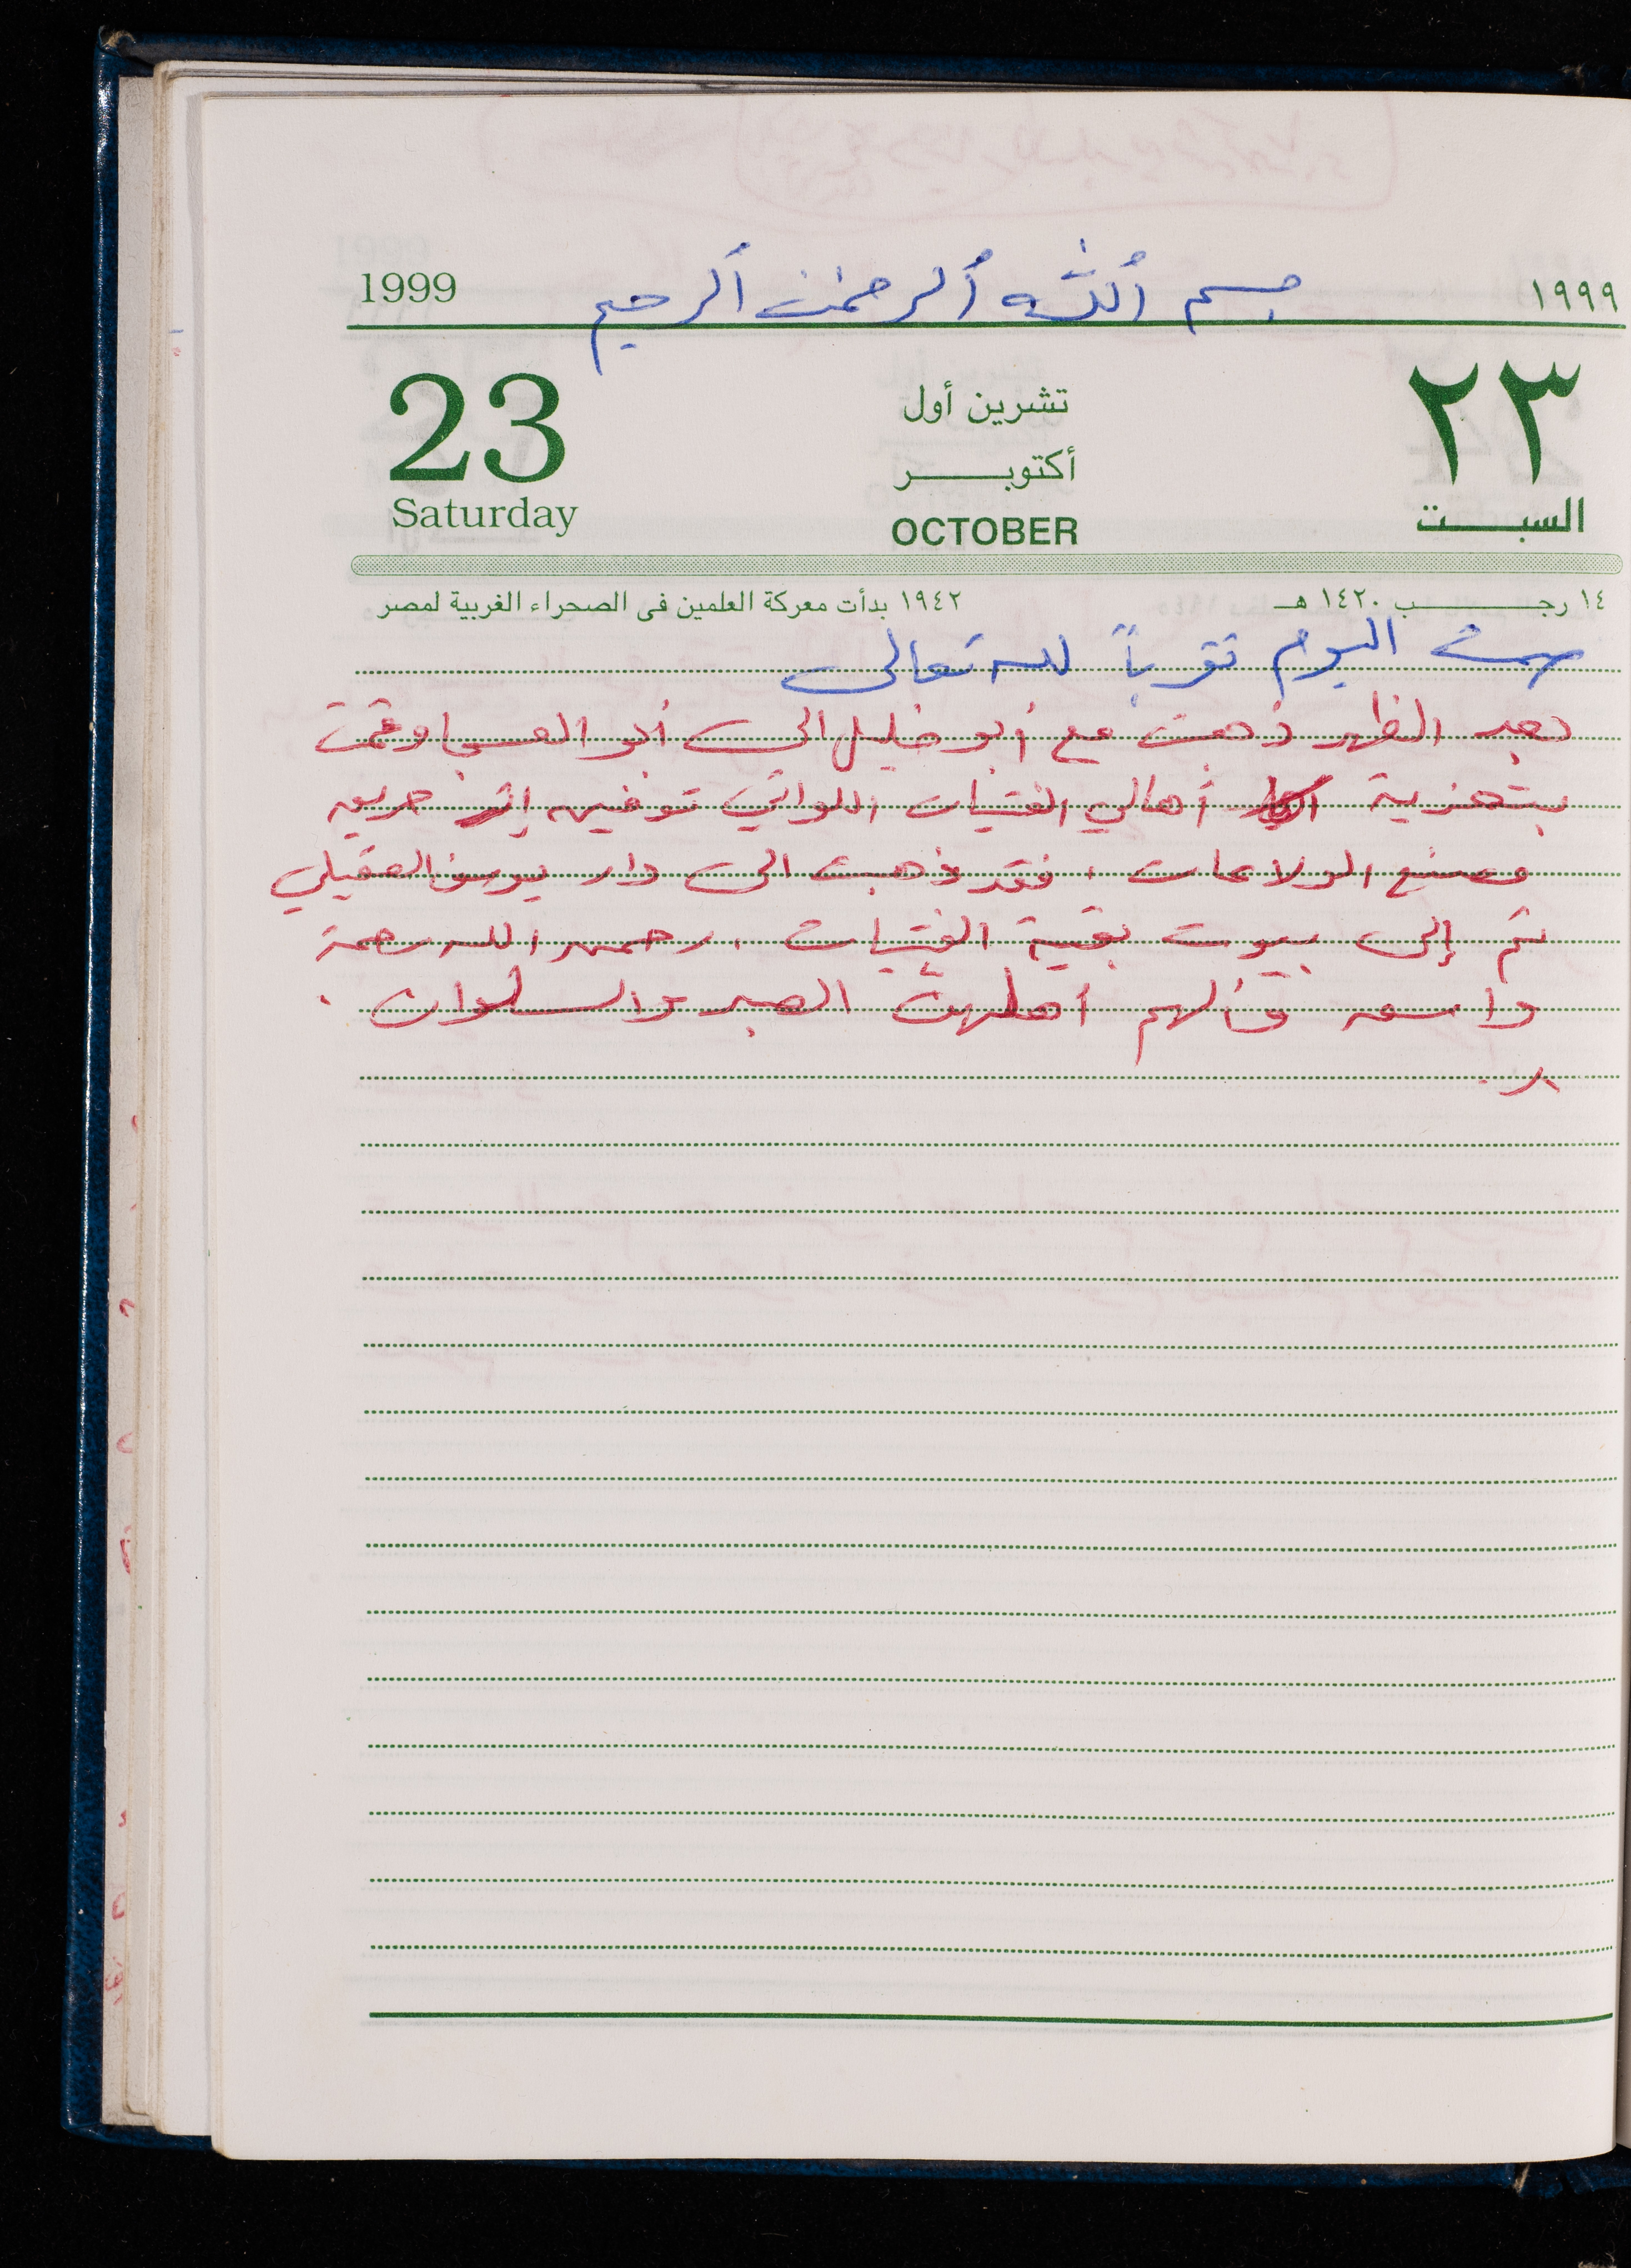 ١٩٩٩ بسم الله الرحمن الرحيم 1999
٢٣ تشرين أول 23
أكتوبر
السبت OCTOBER Saturday
١٤ رجب ١٤٢٠ هـ ١٩٤٢ بدأت معركة العلمين فى الصحراء الغربية لمصر
صمت اليوم تقرباً لله تعالى
بعد الظهر ذهبت مع أبو خليل الى أبو العسجا وقمت
بتعزية أهالي الفتيات اللواتي توفين إثر حريق
مصنع الولاعات، فقد ذهبت الى دار يوسف العقيلي
ثم إلى بيوت بقية الفتيات، رحمهن الله رحمة
واسعه وألهم أهلهن الصبر والسلوان.